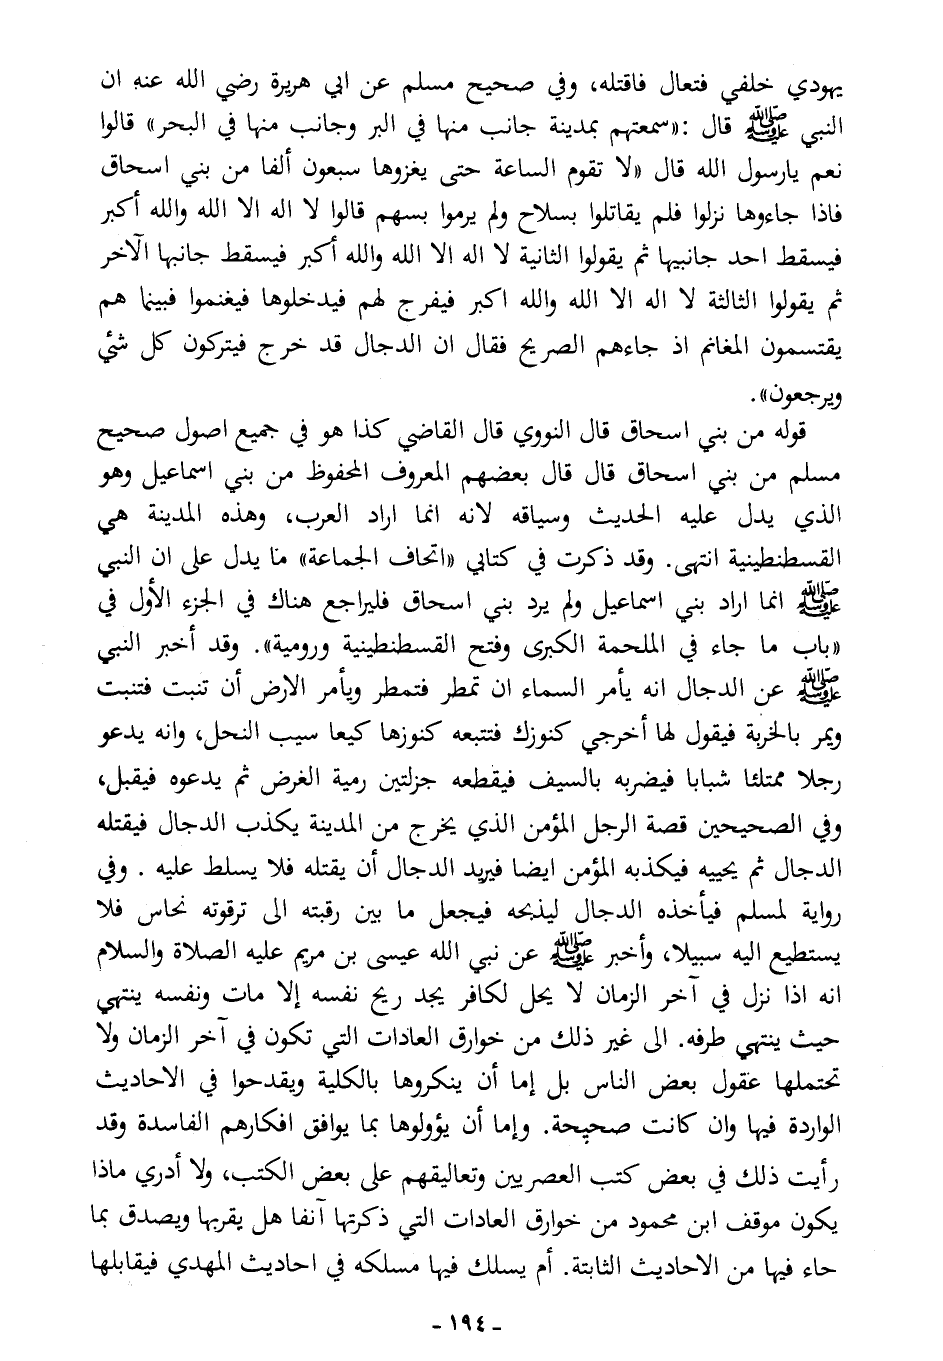 يهودي خلفي فتعال فاقتله، وفي صحيح مسلم عن ابي هريرة رضي الله عنه ان
النبي ﷺ قال :«سمعتهم بمدينة جانب منها في البر وجانب منها في البحر» قالوا
نعم يارسول الله قال «لا تقوم الساعة حتى يغزوها سبعون ألفا من بني اسحاق
فاذا جاءوها نزلوا فلم يقاتلوا بسلاح ولم يرموا بسهم قالوا لا اله الا الله والله أكبر
فيسقط احد جانبيها ثم يقولوا الثانية لا اله الا الله والله أكبر فيسقط جانبها الآخر
ثم يقولوا الثالثة لا اله الا الله والله اكبر فيفرج لهم فيدخلوها فيغنموا فبينما هم
يقتسمون المغانم اذ جاءهم الصريخ فقال ان الدجال قد خرج فيتركون كل شئي
ويرجعون».
قوله من بني اسحاق قال النووي قال القاضي كذا هو في جميع اصول صحيح
مسلم من بني اسحاق قال قال بعضهم المعروف المحفوظ من بني اسماعيل وهو
الذي يدل عليه الحديث وسياقه لانه انما اراد العرب، وهذه المدينة هي
القسطنطينية انتهى. وقد ذكرت في كتابي «اتحاف الجماعة» ما يدل على ان النبي
ﷺ انما اراد بني اسماعيل ولم يرد بني اسحاق فليراجع هناك في الجزء الأول في
«باب ما جاء في الملحمة الكبرى وفتح القسطنطينية ورومية». وقد أخبر النبي
ﷺ عن الدجال انه يأمر السماء ان تمطر فتمطر ويأمر الارض أن تنبت فتنبت
ويمر بالخربة فيقول لها أخرجي كنوزك فتتبعه كنوزها كيعا سيب النحل، وانه يدعو
رجلا ممتلئا شبابا فيضربه بالسيف فيقطعه جزلتين رمية الغرض ثم يدعوه فيقبل،
وفي الصحيحين قصة الرجل المؤمن الذي يخرج من المدينة يكذب الدجال فيقتله
الدجال ثم يحييه فيكذبه المؤمن ايضا فيريد الدجال أن يقتله فلا يسلط عليه . وفي
رواية لمسلم فيأخذه الدجال ليذبحه فيجعل ما بين رقبته الى ترقوته نحاس فلا
يستطيع اليه سبيلا، وأخبر ﷺ عن نبي الله عيسى بن مريم عليه الصلاة والسلام
انه اذا نزل في آخر الزمان لا يحل لكافر يجد ريح نفسه إلا مات ونفسه ينتهي
حيث ينتهي طرفه. الى غير ذلك من خوارق العادات التي تكون في آخر الزمان ولا
تحتملها عقول بعض الناس بل إما أن ينكروها بالكلية ويقدحوا في الاحاديث
الواردة فيها وان كانت صحيحة. وإما أن يؤولوها بما يوافق افكارهم الفاسدة وقد
رأيت ذلك في بعض كتب العصريين وتعاليقهم على بعض الكتب، ولا أدري ماذا
يكون موقف ابن محمود من خوارق العادات التي ذكرتها آنفا هل يقربها ويصدق بما
حاء فيها من الاحاديث الثابتة. أم يسلك فيها مسلكه في احاديث المهدي فيقابلها
- ١٩٤ -